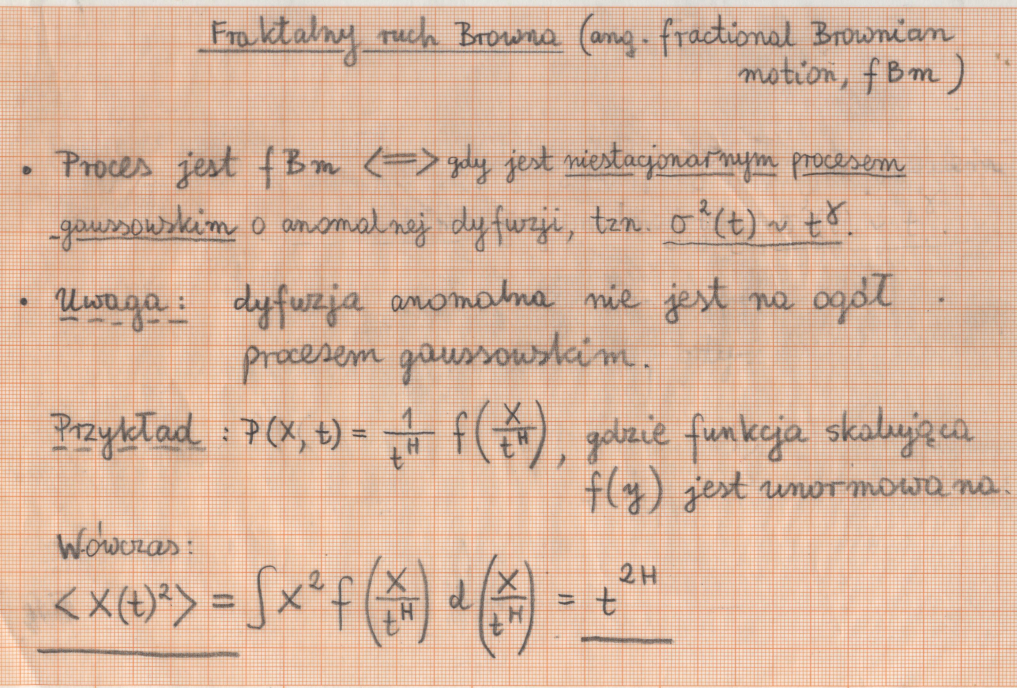 Fraktalny ruch Browna (ang. fractional Brownian
motion, fBm)
• Proces jest fBm <=> gdy jest niestacjonarnym procesem
gaussowskim o anomalnej dyfuzji, tzn. σ²(t) ~ t^γ.
• Uwaga: dyfuzja anomalna nie jest na ogół
procesem gaussowskim.
Przykład: P(X, t) = 1/t^H f(X/t^H), gdzie funkcja skalująca
f(y) jest unormowana.
Wówczas:
<X(t)²> = ∫ X² f(X/t^H) d(X/t^H) = t^2H